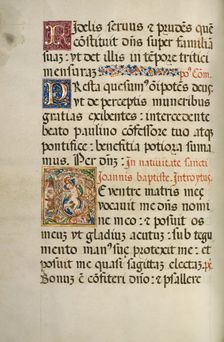 Fidelis seruus & prudens quē
cōstituit dn̄s super familiā
suaz: vt det illis in tēpore tritici
mensuraz. pꝰ Com̄.
Presta quesum' oīpotēs deus,
vt de perceptis muneribus
gratias exibentes: intercedente
beato paulino cōfessore tuo atq̄
pontifice: benefitia potiora suma
mus. Per dn̄z: In natiuitate sancti
Ioannis baptiste. Introytus.
De ventre matris meę
vocauit me dn̄s nomi
ne meo: & posuit os
meuz vt gladiuz acutuz: sub tegu
mento man' suę protexit me: et
posuit me quasi sagittaz electaz. ps.
Bonuz ē cōfiteri dn̄o: & psallere